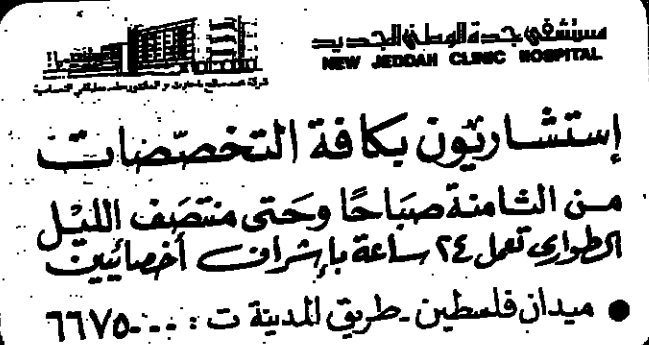 مستشفى جدة الوطني الجديد
NEW JEDDAH CLINIC HOSPITAL
إستشاريّون بكافة التخصّصات
من الثامنة صبَاحًا وحَتى منتصَف الليْل
الطوارئ تعمل ٢٤ ساعة بإشراف أخصائيين
● ميدان فلسطين - طريق المدينة ت : ٦٦٧٥٠٠٠